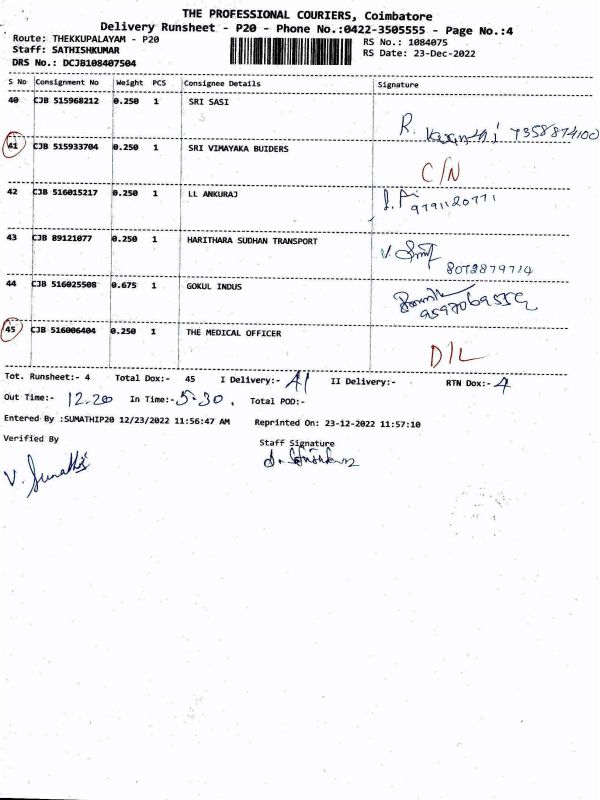 THE PROFESSIONAL COURIERS, Coimbatore
Delivery Runsheet - P20 - Phone No.:0422-3505555 - Page No.:4
Route: THEKKUPALAYAM - P20
RS No.: 1084075
Staff: SATHISHKUMAR
RS Date: 23-Dec-2022
DRS No.: DCJB108407504
S No Consignment No Weight PCS Consignee Details Signature
40 CJB 515968212 0.250 1 SRI SASI
R. 7358874100
41 CJB 515933704 0.250 1 SRI VIMAYAKA BUIDERS
C/N
42 CJB 516015217 0.250 1 LL ANKURAJ
9791120771
43 CJB 89121077 0.250 1 HARITHARA SUDHAN TRANSPORT
8072879714
44 CJB 516025508 0.675 1 GOKUL INDUS
45 CJB 516006404 0.250 1 THE MEDICAL OFFICER
D/L
Tot. Runsheet:- 4 Total Dox:- 45 I Delivery:- 41 II Delivery:- RTN Dox:- 4
Out Time:- 12.20 In Time:- 5.30. Total POD:-
Entered By :SUMATHIP20 12/23/2022 11:56:47 AM Reprinted On: 23-12-2022 11:57:10
Verified By Staff Signature
V. Sumathi